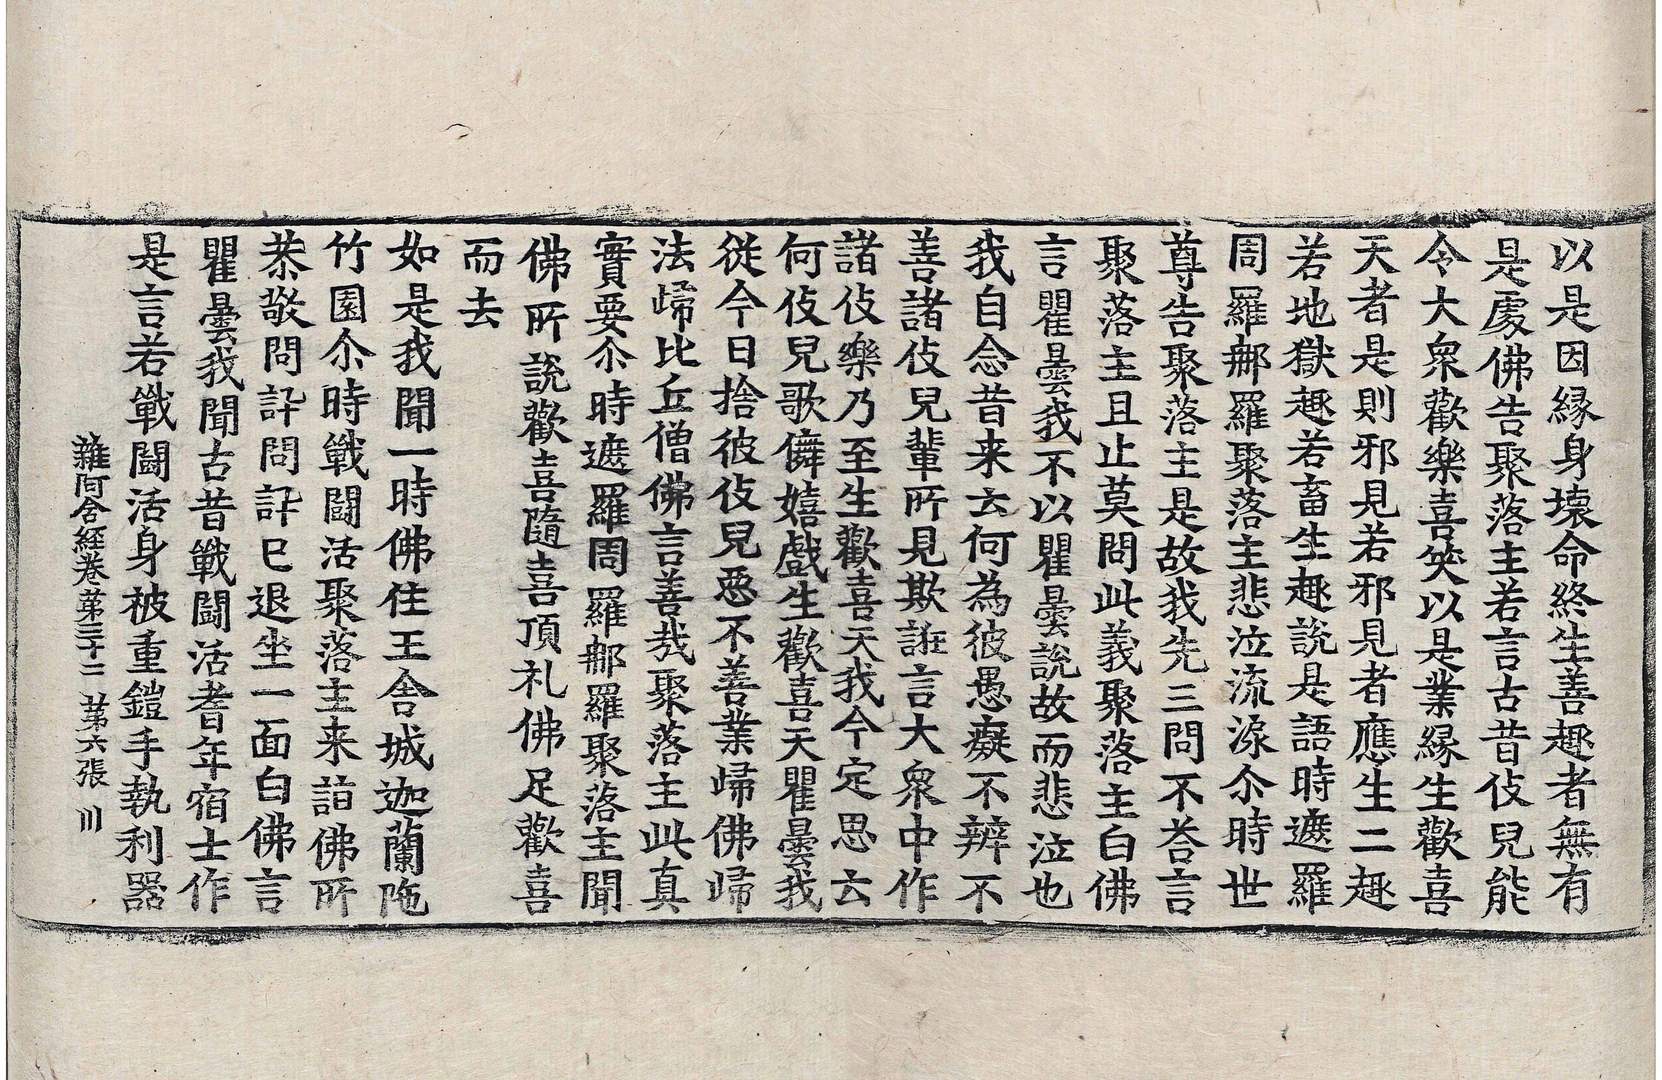 以是因縁身壞命終生善趣者無有
是處佛告聚落主若言古昔伎兒能
令大衆歡樂喜笑以是業縁生歡喜
天者是則邪見若邪見者應生二趣
若地獄趣若畜生趣說是語時遮羅
周羅郍羅聚落主悲泣流淚尒時世
尊告聚落主是故我先三問不荅言
聚落主且止莫問此義聚落主白佛
言瞿曇我不以瞿曇說故而悲泣也
我自念昔来云何為彼愚癡不辨不
善諸伎兒輩所見欺誑言大衆中作
諸伎樂乃至生歡喜天我今定思云
何伎兒歌儛嬉戲生歡喜天瞿曇我
從今日捨彼伎兒惡不善業歸佛歸
法歸比丘僧佛言善哉聚落主此真
實要尒時遮羅周羅郍羅聚落主聞
佛所說歡喜隨喜頂礼佛足歡喜
而去
如是我聞一時佛住王舍城迦蘭陁
竹園尒時戰鬪活聚落主来詣佛所
恭敬問訊問訊已退坐一面白佛言
瞿曇我聞古昔戰鬪活耆年宿士作
是言若戰鬪活身被重鎧手執利器
雜阿含經卷第三十二 第六張 川